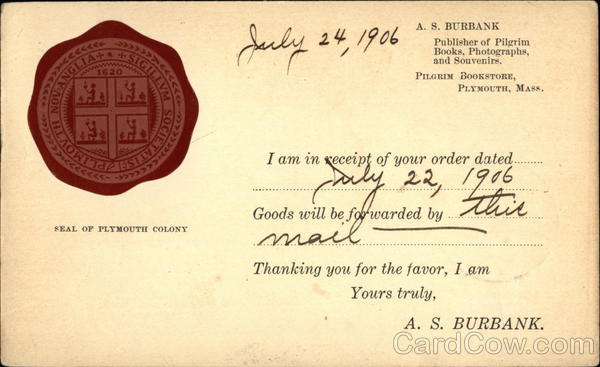 July 24, 1906
A. S. BURBANK
Publisher of Pilgrim
Books, Photographs,
and Souvenirs.
PILGRIM BOOKSTORE,
PLYMOUTH, MASS.
SIGILLVM SOCIETATIS PLIMOVTH NOVANGLIA
1620
SEAL OF PLYMOUTH COLONY
I am in receipt of your order dated
July 22, 1906
Goods will be forwarded by this
mail
Thanking you for the favor, I am
Yours truly,
A. S. BURBANK.
CardCow.com